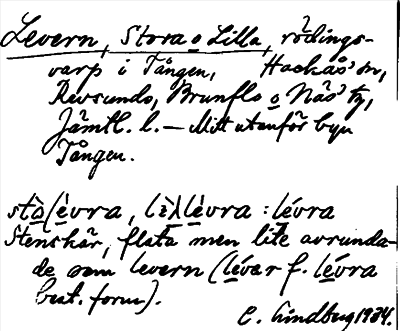 Levern, Stora o Lilla, rödings-
varp i Tången, Hackås sn,
Revsunds, Brunflo o Näs tg,
Jämtl. l. — Mitt utanför byn
Tången.
stò(èvra, lìλlèvra : lévra
Stenskär, flata men lite avrunda-
de som levern (lévar f. lévra
best. form).
C. Lindberg 1934.